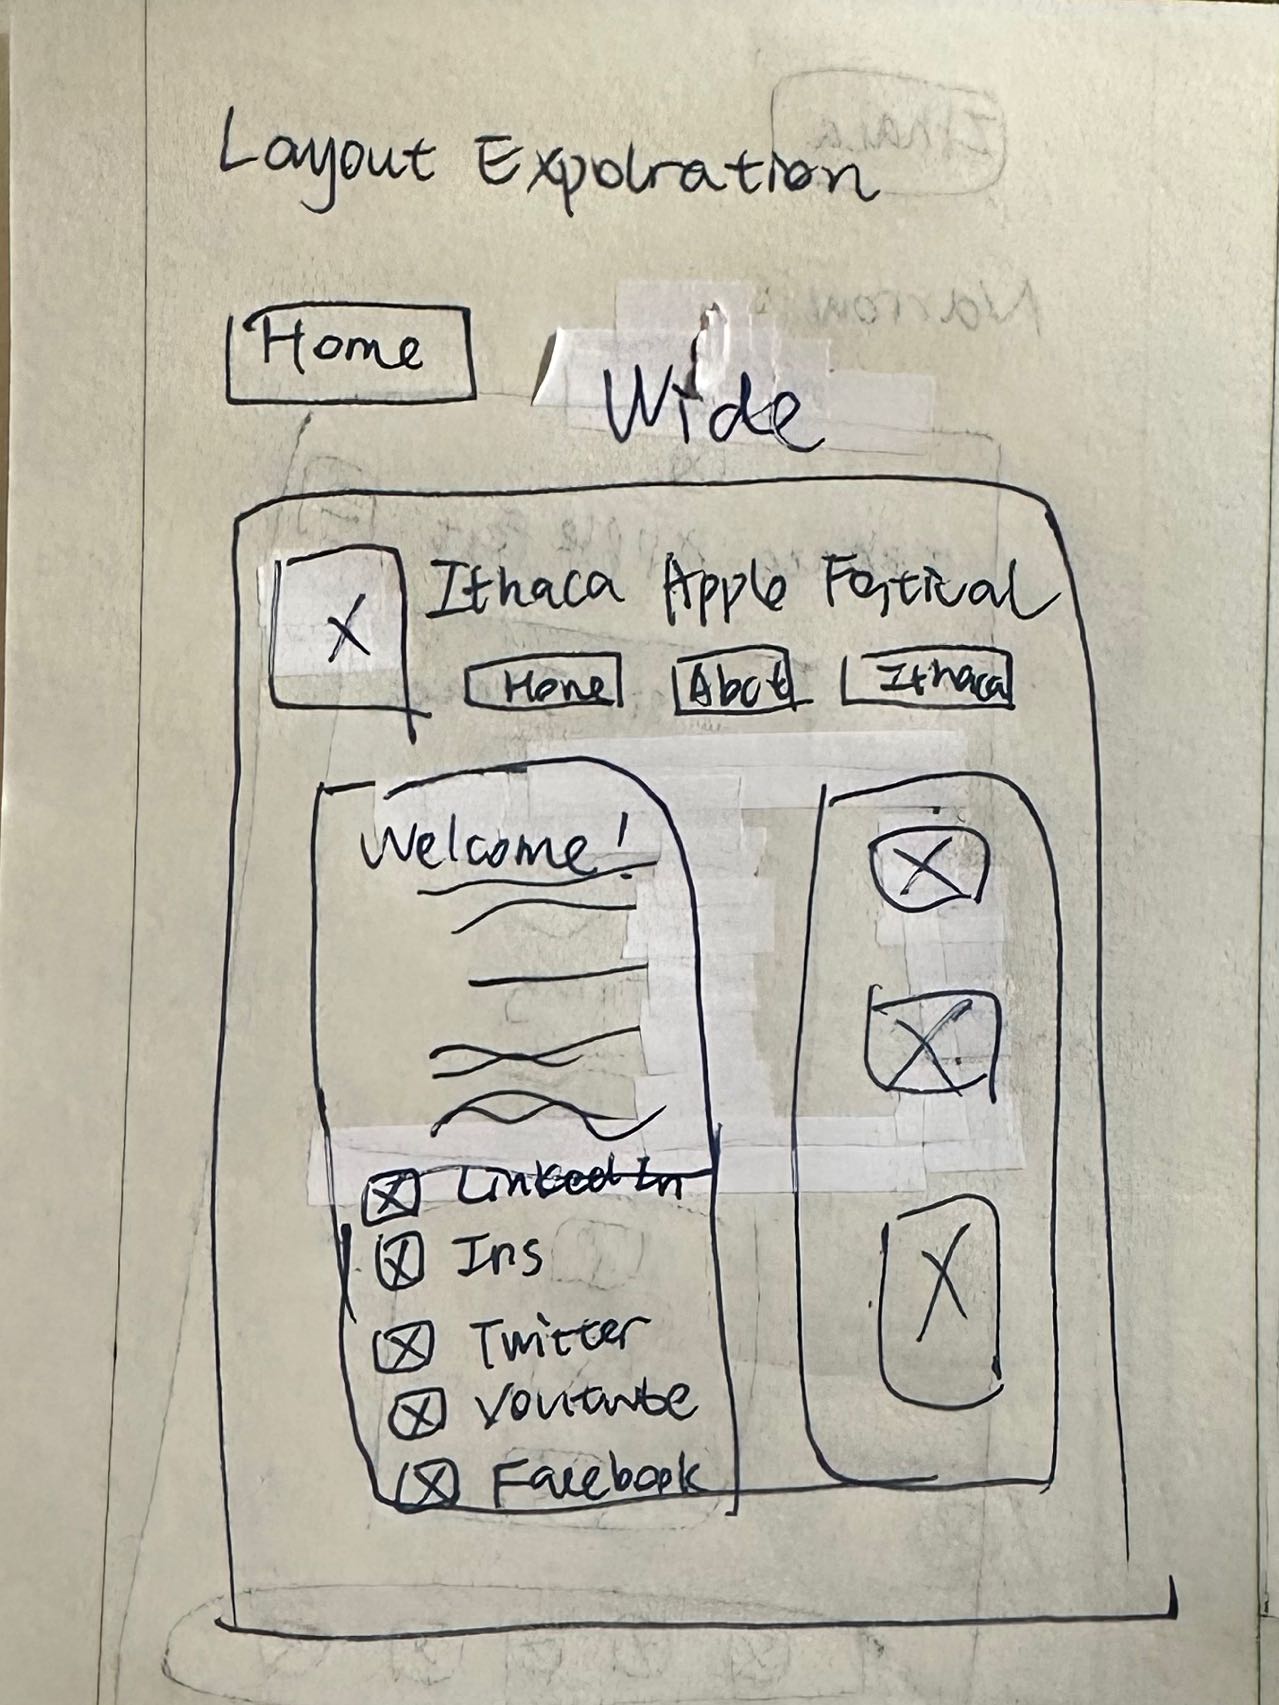 Layout Expolration
Home
Wide
Ithaca Apple Festival
Home
Abot
Ithaca
Welcome!
LinkedIn
Ins
Twitter
Youtube
Facebook